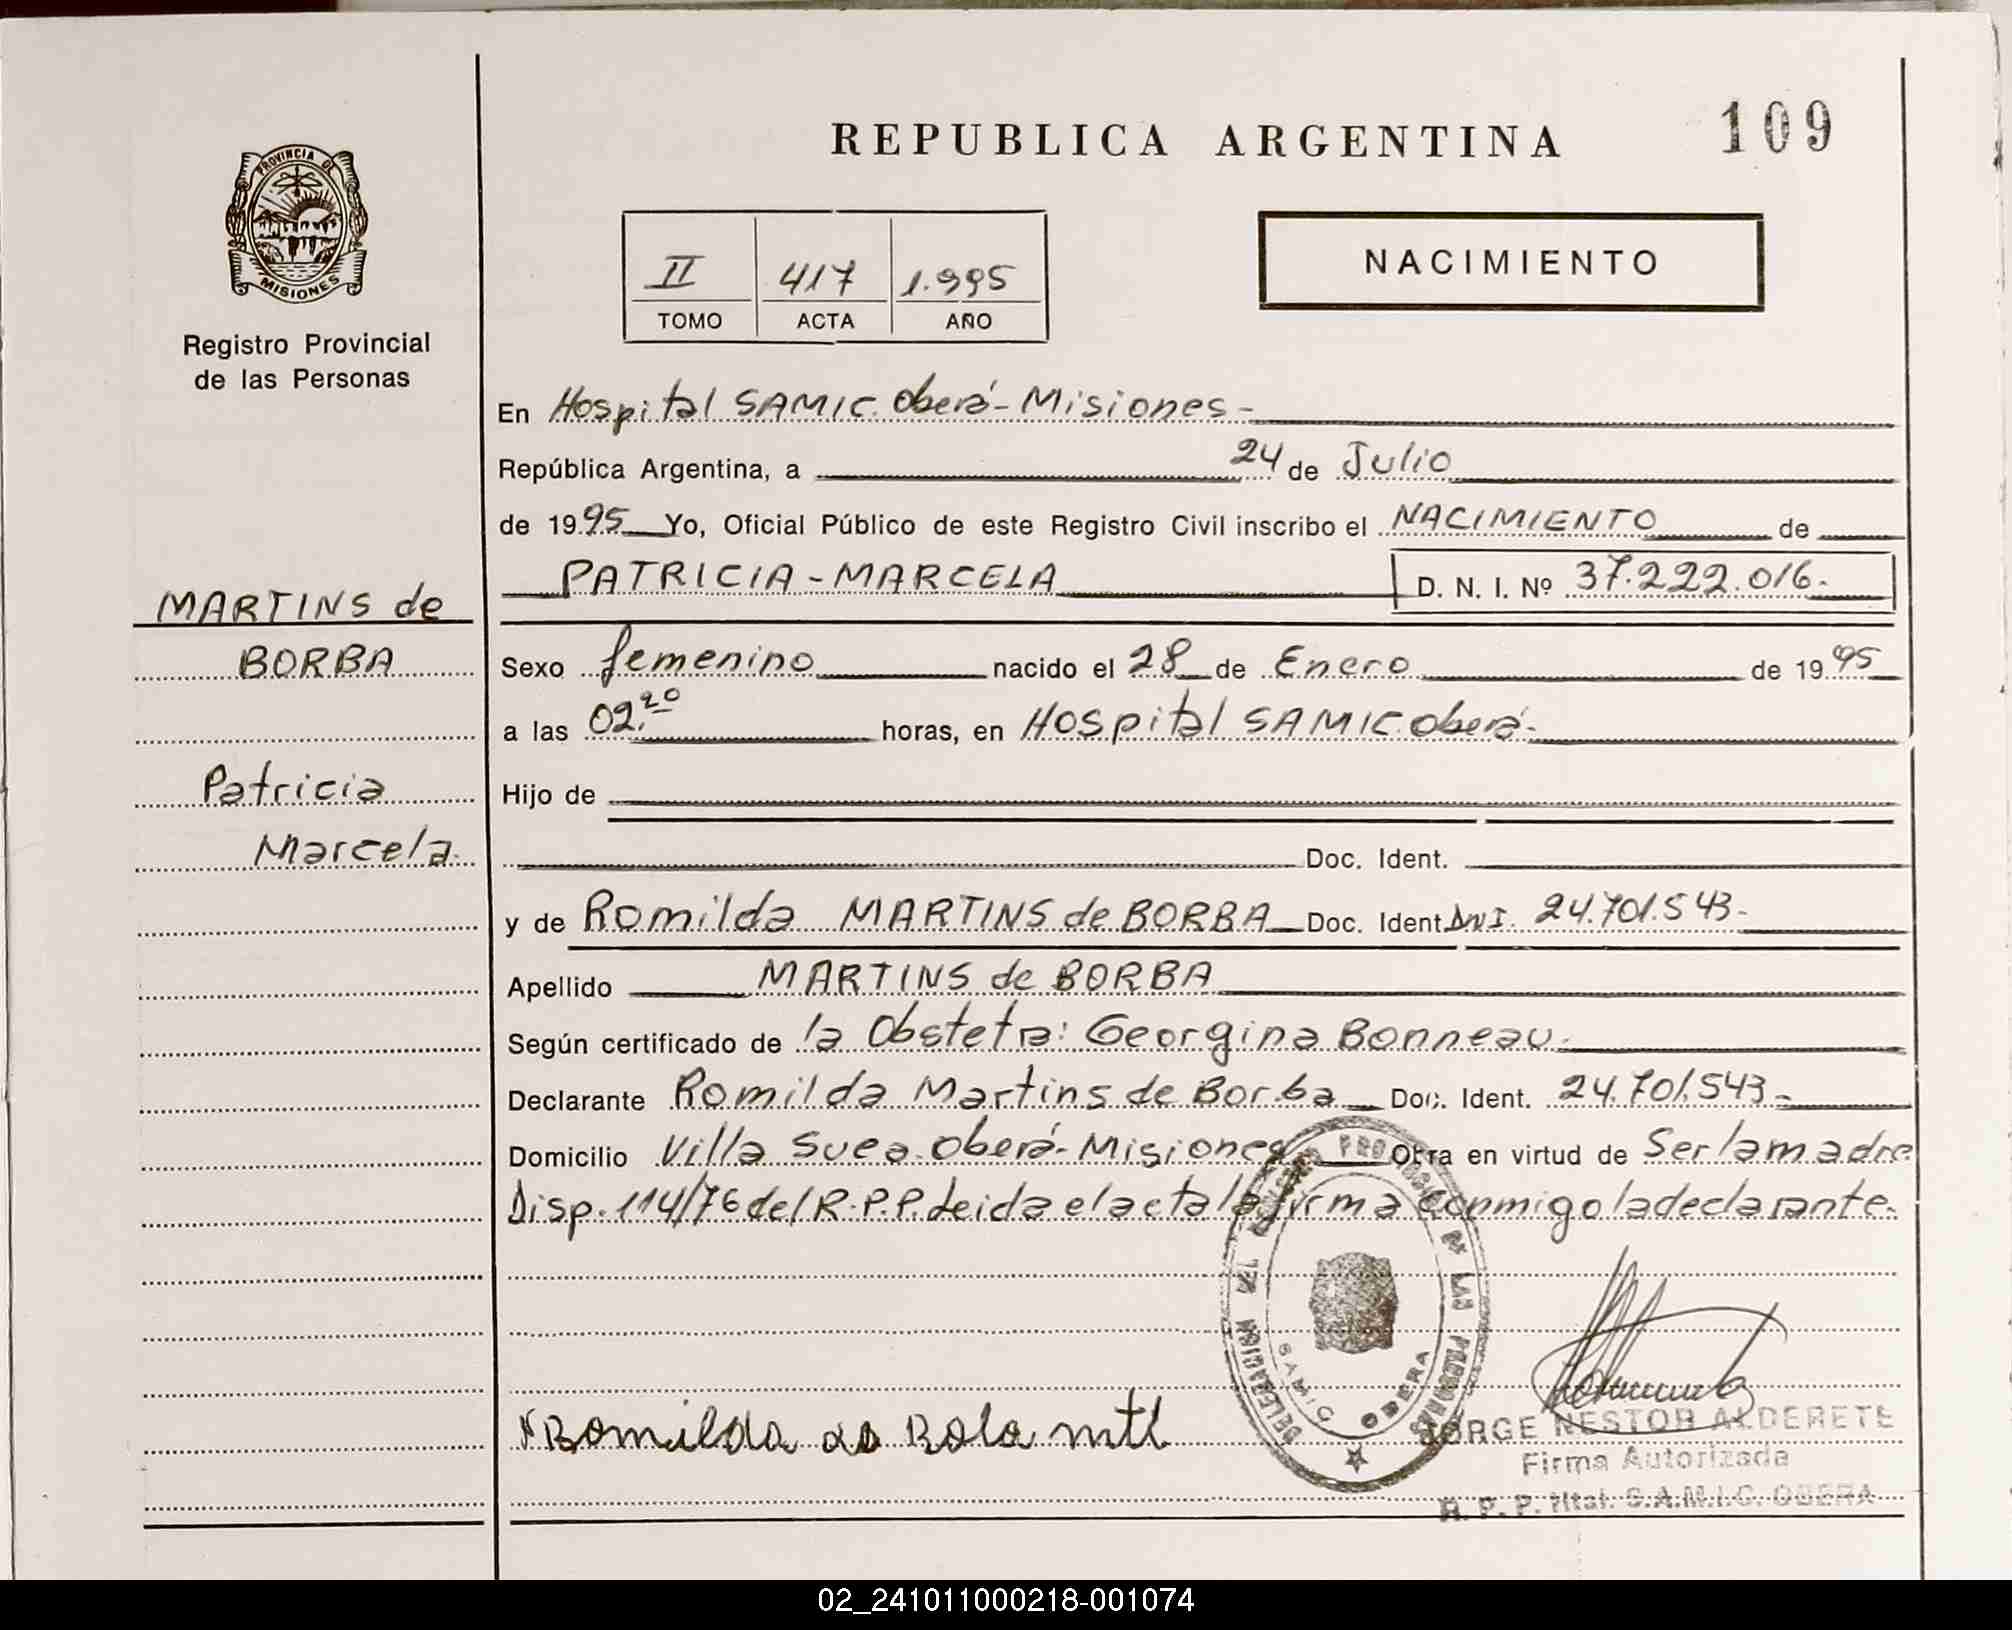 REPUBLICA ARGENTINA
109
PROVINCIA DE
MISIONES
Registro Provincial
de las Personas
II 417 1.995
TOMO ACTA AÑO
NACIMIENTO
En Hospital SAMIC. Oberá - Misiones -
República Argentina, a 24 de Julio
de 1995 Yo, Oficial Público de este Registro Civil inscribo el NACIMIENTO de
PATRICIA - MARCELA D. N. I. Nº 37.222.016.
MARTINS de
BORBA
Patricia
Marcela.
Sexo femenino nacido el 28 de Enero de 1995
a las 02.20 horas, en Hospital SAMIC. Oberá.
Hijo de
Doc. Ident.
y de Romilda MARTINS de BORBA Doc. Ident. DNI. 24.701.543-
Apellido MARTINS de BORBA
Según certificado de la Obstetra: Georgina Bonneau.
Declarante Romilda Martins de Borba Doc. Ident. 24.701.543-
Domicilio Villa Suea. Oberá- Misiones Obra en virtud de Ser la madre
Disp. 114/76 del R.P.P. Leida el acta la firma conmigo la declarante.
DELEGACION DEL REGISTRO PROVINCIAL DE LAS PERSONAS
SAMIC OBERA
JORGE NESTOR ALDERETE
Firma Autorizada
R. P. P. Htal. S.A.M.I.C. OBERA
02_241011000218-001074